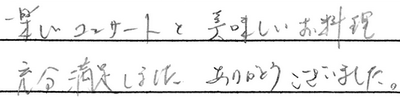 楽しいコンサートと美味しいお料理
充分満足しました ありがとうございました。